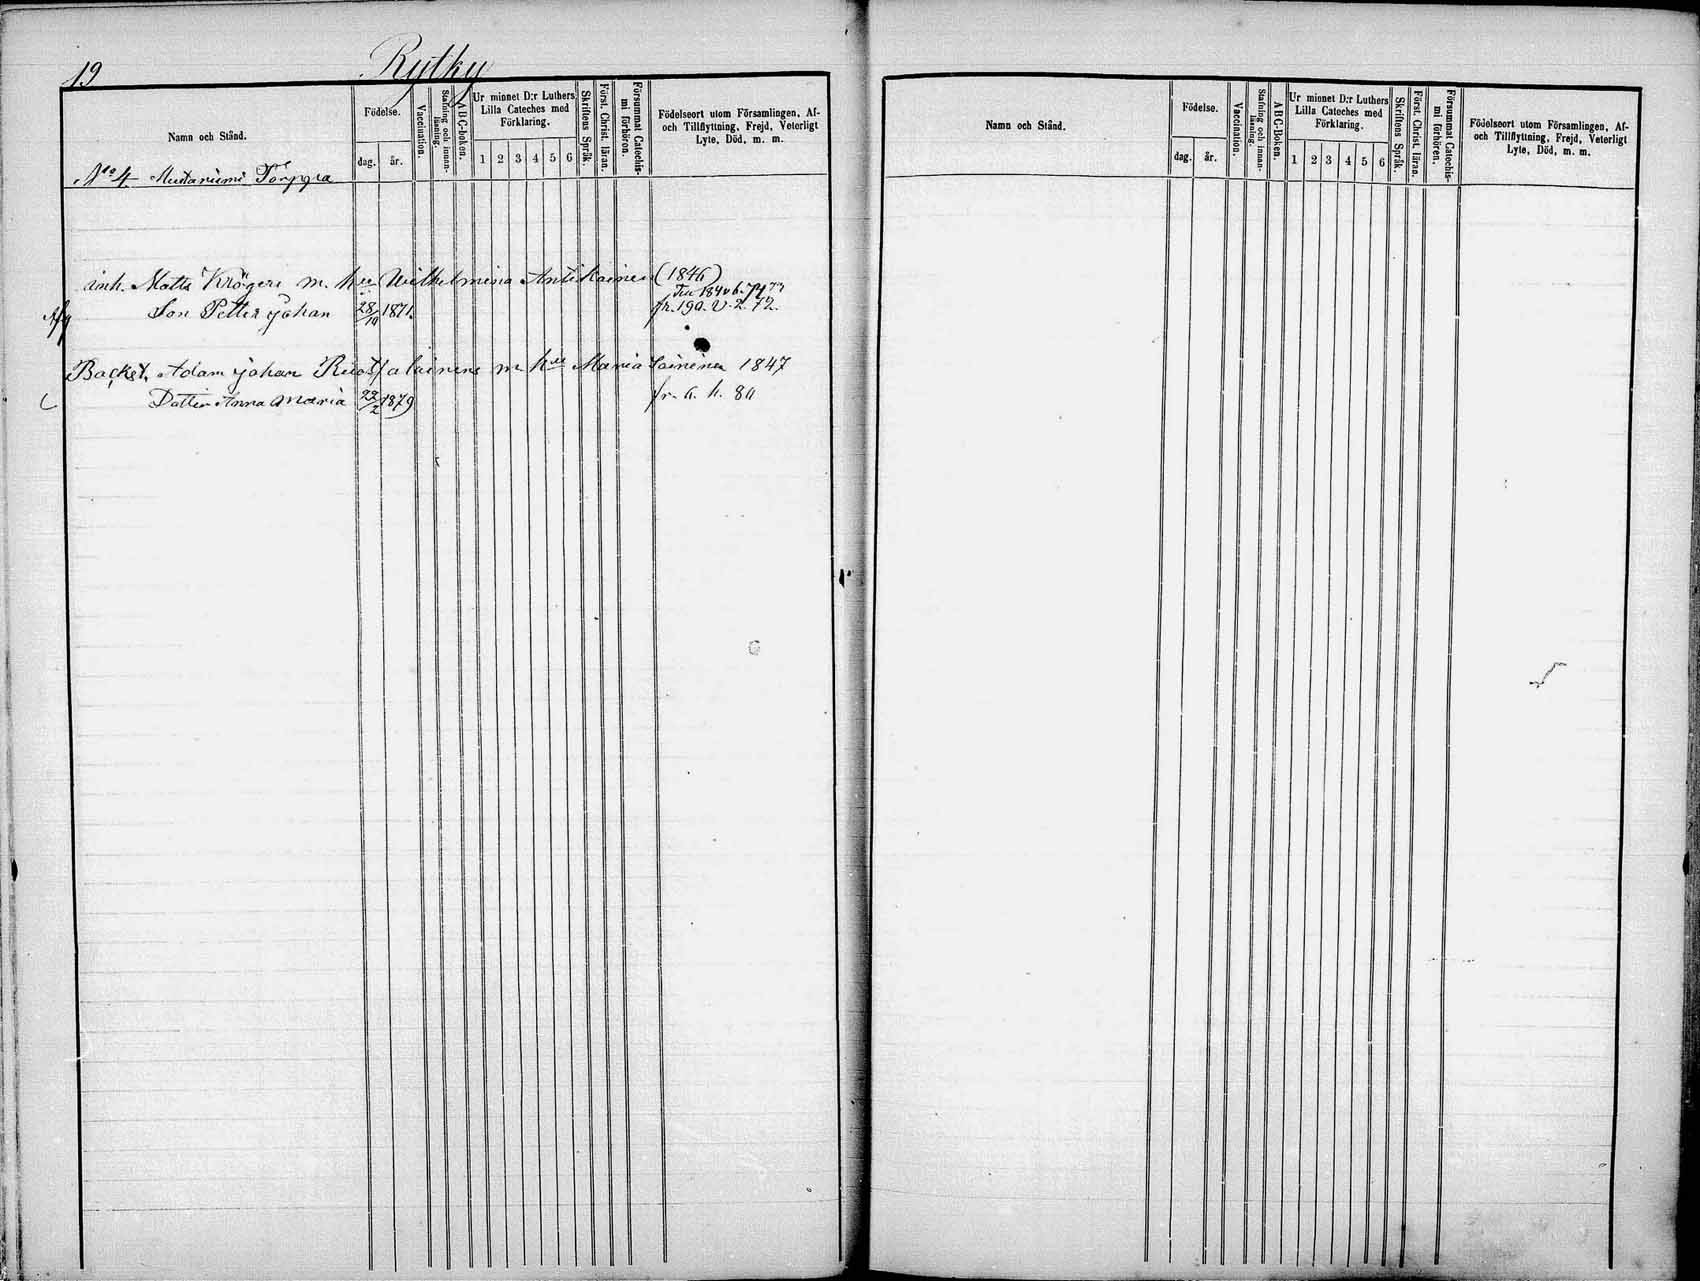 19
Rytky
Namn och Stånd.
Födelse.
dag. år.
Vaccination.
Stafning och innan-läsning.
ABC-boken.
Ur minnet D:r Luthers Lilla Cateches med Förklaring.
1 2 3 4 5 6
Skriftens Språk.
Först. Christ. läran.
Försummat Catechis-mi förhören.
Födelseort utom Församlingen, Af-
och Tillflyttning, Frejd, Veterligt
Lyte, Död, m. m.
No 4 Mustaniemi Torppa
inh. Matts Krögers m. hu Wilhelmina Antikainen (1846)
Son Petter Johan 28/10 1871. fr. 190. V. 2. 72.
Backst. Adam Johan m hu Maria 1847
Dotter Anna Maria 22/2 1879 fr. h. 80
Namn och Stånd.
Födelse.
dag. år.
Vaccination.
Stafning och innan-läsning.
ABC-Boken.
Ur minnet D:r Luthers Lilla Cateches med Förklaring.
1 2 3 4 5 6
Skriftens Språk.
Först. Christ. läran.
Försummat Catechis-mi förhören.
Födelseort utom Församlingen, Af-
och Tillflyttning, Frejd, Veterligt
Lyte, Död, m. m.